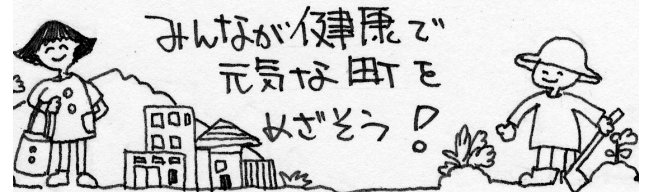 みんなが健康で
元気な町を
めざそう!